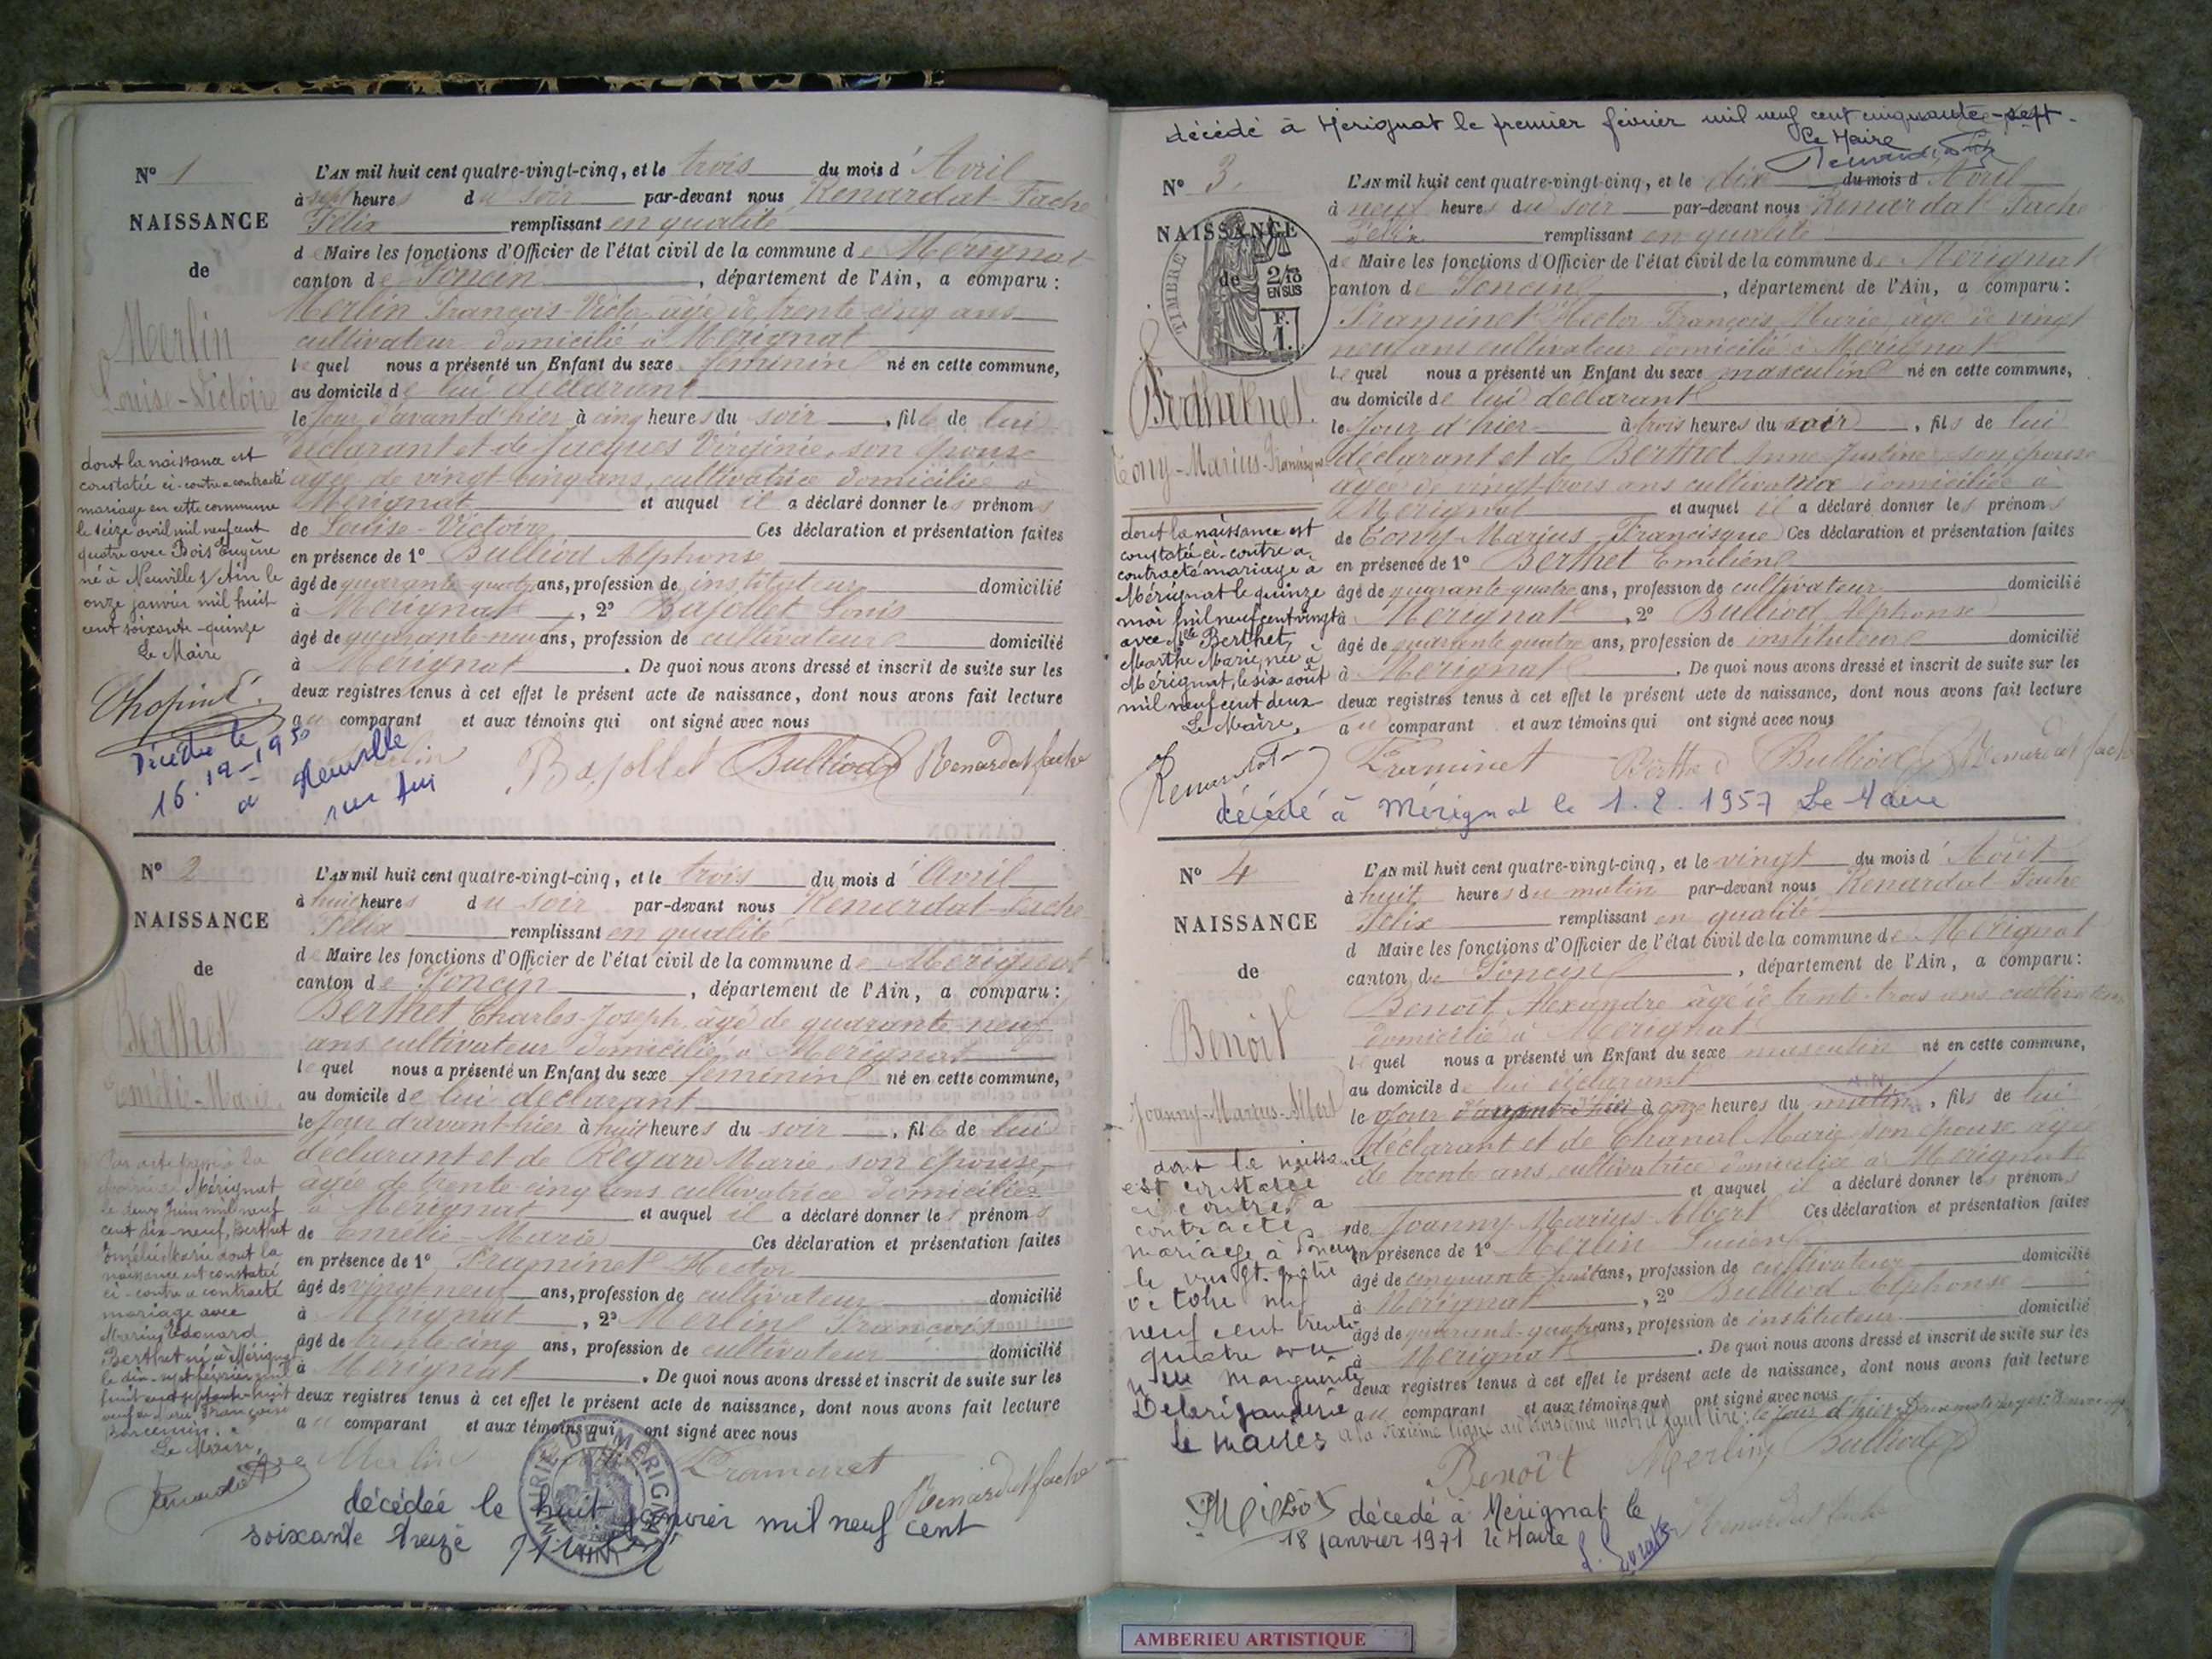 Nº 1
NAISSANCE
de
Merlin
Louise-Victoire
dont la naissance est
constatée ci-contre a contracté
mariage en cette commune
le seize avril mil neuf cent
quatre avec Bois Eugène
né à Neuville s/Ain le
onze janvier mil huit
cent soixante-quinze
Le Maire
Chopin
Décédée le
16-12-1950
à Neuville
sur Ain
L'AN mil huit cent quatre-vingt-cinq, et le trois du mois d'Avril
à sept heures du soir par-devant nous Renardat-Fache
Félix remplissant en qualité
de Maire les fonctions d'Officier de l'état civil de la commune de Merignat
canton de Poncin, département de l'Ain, a comparu :
Merlin François-Victor âgé de trente cinq ans
cultivateur domicilié à Merignat
lequel nous a présenté un Enfant du sexe féminin né en cette commune,
au domicile de lui déclarant
le Jour d'avant d'hier à cinq heures du soir, fille de lui
déclarant et de Jacques Virginie, son épouse
âgée de vingt cinq ans, cultivatrice domiciliée à
Merignat et auquel il a déclaré donner les prénoms
de Louise-Victoire Ces déclaration et présentation faites
en présence de 1º Bulliod Alphonse
âgé de quarante quatre ans, profession de instituteur domicilié
à Merignat, 2º Bajollet Louis
âgé de quarante-neuf ans, profession de cultivateur domicilié
à Merignat. De quoi nous avons dressé et inscrit de suite sur les
deux registres tenus à cet effet le présent acte de naissance, dont nous avons fait lecture
au comparant et aux témoins qui ont signé avec nous
Merlin Bajollet Bulliod Renardat fache
Nº 2
NAISSANCE
de
Berthet
Emélie-Marie
Mérignat
le deux Juin mil neuf
cent dix-neuf, Berthet
Emélie Marie dont la
naissance est constatée
ci-contre a contracté
mariage avec
Marius Edouard
Berthet né à Mérignat
le dix-sept février mil
huit cent septante-huit
Le Maire,
L'AN mil huit cent quatre-vingt-cinq, et le trois du mois d'Avril
à huit heures du soir par-devant nous Renardat-Fache
Félix remplissant en qualité
de Maire les fonctions d'Officier de l'état civil de la commune de Merignat
canton de Poncin, département de l'Ain, a comparu :
Berthet Charles-Joseph âgé de quarante neuf
ans cultivateur domicilié à Merignat
lequel nous a présenté un Enfant du sexe féminin né en cette commune,
au domicile de lui déclarant
le Jour d'avant hier à huit heures du soir, fille de lui
déclarant et de Régard Marie, son épouse,
âgée de trente cinq ans cultivatrice domiciliée
à Merignat et auquel il a déclaré donner les prénoms
de Emélie-Marie Ces déclaration et présentation faites
en présence de 1º Framinet Hector
âgé de vingt neuf ans, profession de cultivateur domicilié
à Merignat, 2º Merlin François
âgé de trente-cinq ans, profession de cultivateur domicilié
à Merignat. De quoi nous avons dressé et inscrit de suite sur les
deux registres tenus à cet effet le présent acte de naissance, dont nous avons fait lecture
au comparant et aux témoins qui ont signé avec nous
Merlin Framinet Renardat fache
MAIRIE DE MERIGNAT
décédée le huit janvier mil neuf cent
soixante treize
décédé à Merignat le premier février mil neuf cent cinquante-sept.
Le Maire
Nº 3
NAISSANCE
de
TIMBRE
2/10
EN SUS
F.
1.
Framinet
Tony-Marius-Francisque
dont la naissance est
constatée ci-contre a
contracté mariage à
Mérignat le quinze
mai mil neuf cent vingt
avec Mlle Berthet
Marthe Marie, née à
Mérignat, le six août
mil neuf cent deux
Le Maire,
L'AN mil huit cent quatre-vingt-cinq, et le dix du mois d'Avril
à neuf heures du soir par-devant nous Renardat Fache
Félix remplissant en qualité
de Maire les fonctions d'Officier de l'état civil de la commune de Merignat
canton de Poncin, département de l'Ain, a comparu :
Framinet Hector François Marie âgé de vingt
neuf ans cultivateur domicilié à Merignat
lequel nous a présenté un Enfant du sexe masculin né en cette commune,
au domicile de lui déclarant
le Jour d'hier à trois heures du soir, fils de lui
déclarant et de Berthet Anne Justine son épouse
âgée de vingt-trois ans cultivatrice domiciliée à
Merignat et auquel il a déclaré donner les prénoms
de Tony-Marius Francisque Ces déclaration et présentation faites
en présence de 1º Berthet Emilien
âgé de quarante quatre ans, profession de cultivateur domicilié
à Merignat, 2º Bulliod Alphonse
âgé de quarante quatre ans, profession de instituteur domicilié
à Merignat. De quoi nous avons dressé et inscrit de suite sur les
deux registres tenus à cet effet le présent acte de naissance, dont nous avons fait lecture
au comparant et aux témoins qui ont signé avec nous
Framinet Berthet Bulliod Renardat fache
décédé à Mérignat le 1.2.1957 Le Maire
Nº 4
NAISSANCE
de
Benoit
Joanny-Marius-Albert
dont la naissance
est constatée
ci contre a
contracté
mariage à Poncin
le vingt-quatre
octobre mil
neuf cent trente
quatre avec
Mlle Marguerite
le maire
L'AN mil huit cent quatre-vingt-cinq, et le vingt du mois d'Août
à huit heures du matin par-devant nous Renardat Fache
Félix remplissant en qualité
d Maire les fonctions d'Officier de l'état civil de la commune de Merignat
canton de Poncin, département de l'Ain, a comparu :
Benoit Alexandre âgé de trente-trois ans cultivateur
domicilié à Merignat
lequel nous a présenté un Enfant du sexe masculin né en cette commune,
au domicile de lui déclarant
le Jour d'avant d'hier à onze heures du matin, fils de lui
déclarant et de Chanal Marie son épouse âgée
de trente ans, cultivatrice domiciliée à Merignat
et auquel il a déclaré donner les prénoms
de Joanny Marius Albert Ces déclaration et présentation faites
en présence de 1º Merlin Lucien
âgé de cinquante huit ans, profession de cultivateur domicilié
à Merignat, 2º Bulliod Alphonse
âgé de quarante-quatre ans, profession de instituteur domicilié
à Merignat. De quoi nous avons dressé et inscrit de suite sur les
deux registres tenus à cet effet le présent acte de naissance, dont nous avons fait lecture
au comparant et aux témoins qui ont signé avec nous
à la dixième ligne au troisième mot il faut lire : le Jour d'hier
Benoît Merlin Bulliod
décédé à Merignat le
18 janvier 1971 le Maire
AMBERIEU ARTISTIQUE